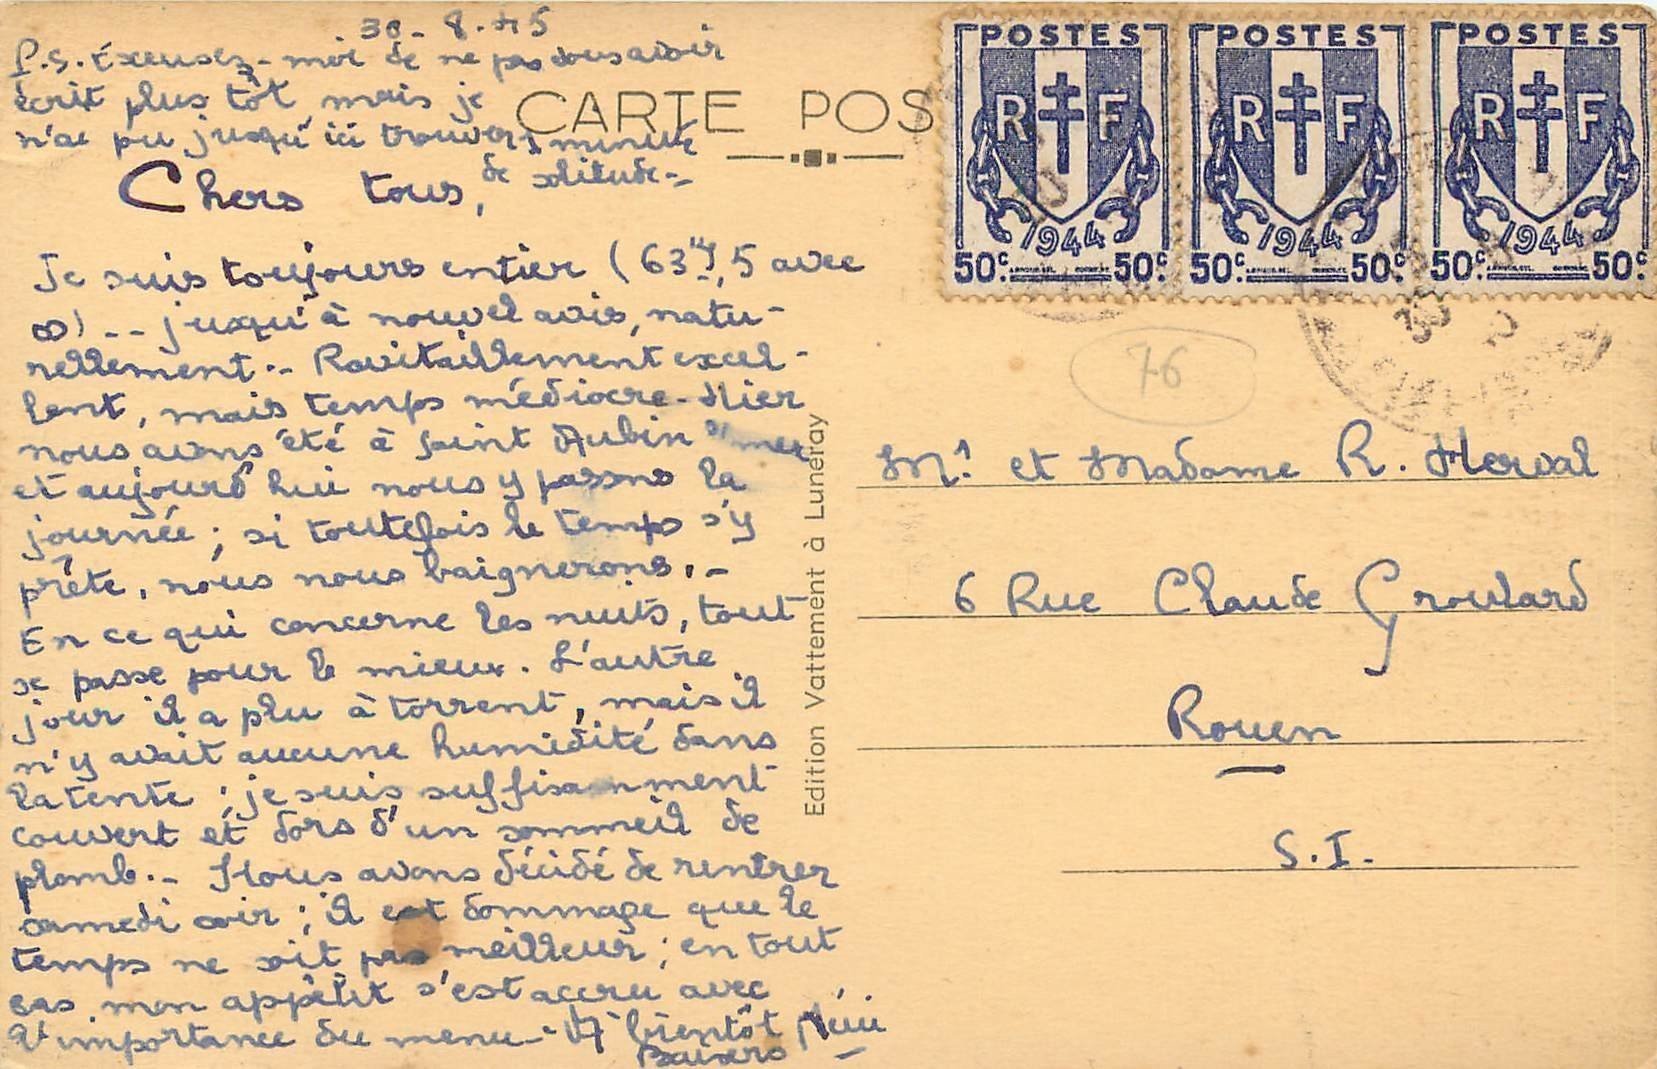 30-8-45
P.S. Excusez-moi de ne pas vous avoir
écrit plus tôt, mais je
n'ai pu jusqu'ici trouver 1 minute
de solitude-
Chers tous,
Je suis toujours entier (63kg,5 avec
)-- jusqu'à nouvel avis, natu-
rellement.- Ravitaillement excel-
lent, mais temps médiocre- Hier
nous avons été à Saint Aubin s/mer
et aujourd'hui nous y passons la
journée; si toutefois le temps s'y
prête, nous nous baignerons.-
En ce qui concerne les nuits, tout
se passe pour le mieux. L'autre
jour il a plu à torrent, mais il
n'y avait aucune humidité dans
la tente; je suis suffisamment
couvert et dors d'un sommeil de
plomb.- Nous avons décidé de rentrer
samedi soir; il est dommage que le
temps ne soit pas meilleur; en tout
cas mon appétit s'est accru avec
l'importance du menu- A bientôt
Baisers
CARTE POS
Edition Vattement à Luneray
POSTES
R F
1944
50c 50c
POSTES
R F
1944
50c 50c
POSTES
R F
1944
50c 50c
76
Mr et Madame R. Herval
6 Rue Claude Groulard
Rouen
S.I.